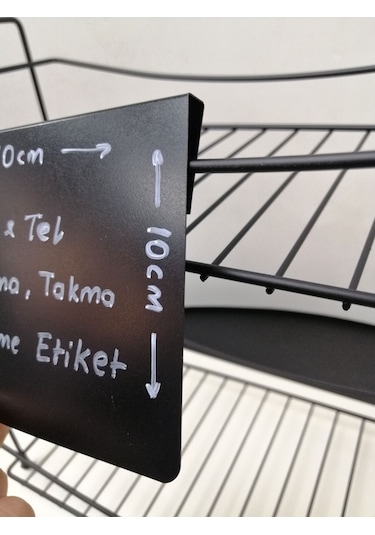 0cm →
& Tel
ma, Takma
me Etiket
← 10cm →